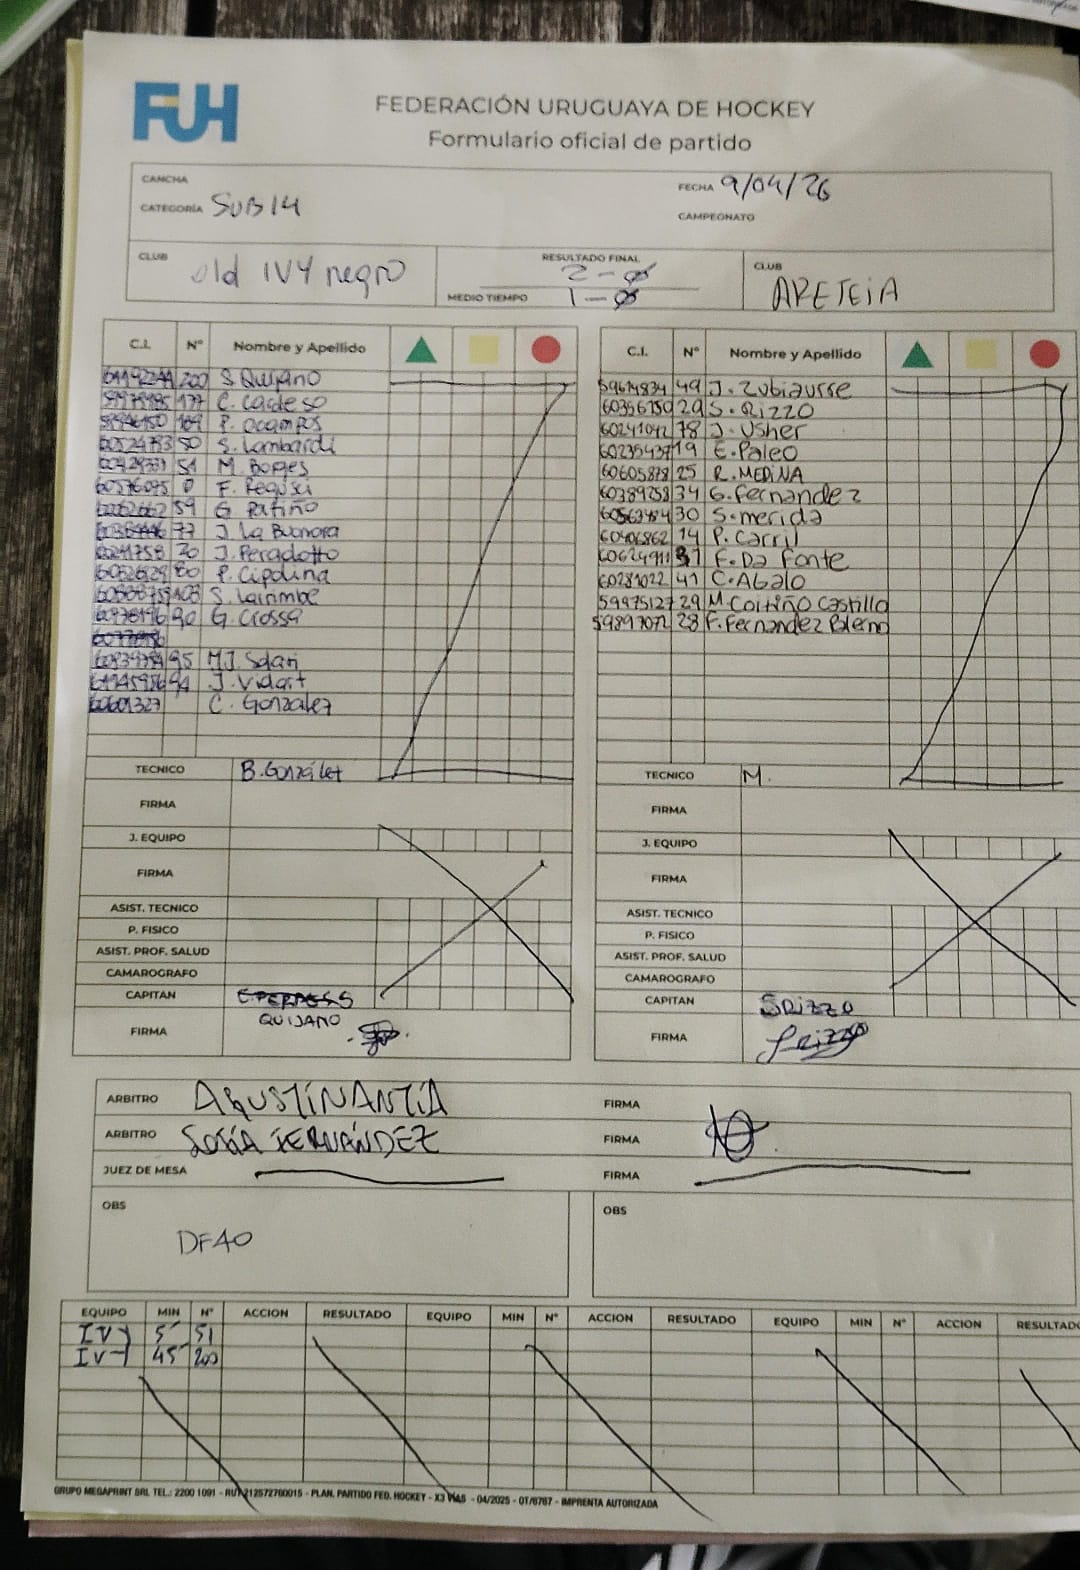 FUH
FEDERACIÓN URUGUAYA DE HOCKEY
Formulario oficial de partido
CANCHA
FECHA 9/04/26
CATEGORÍA SUB14
CAMPEONATO
CLUB old IVY negro
RESULTADO FINAL 2-0
MEDIO TIEMPO 1-0
CLUB ARETEIA
C.I. N° Nombre y Apellido
200 S. Quijano
177 C. Cardeso
169 P. Ocampos
60524793 50 S. Lombardi
51 M. Borges
60576095 0 F. Regusci
59 G. Patiño
77 J. La Buonora
20 J. Peradotto
80 P. Cipolina
S. Lairimbe
90 G. Crossa
95 MJ. Solari
94 J. Vidart
60601327 C. Gonzalez
TECNICO B. González
FIRMA
J. EQUIPO
FIRMA
ASIST. TECNICO
P. FISICO
ASIST. PROF. SALUD
CAMAROGRAFO
CAPITAN
QUIJANO
FIRMA
C.I. N° Nombre y Apellido
59674834 49 J. Zubiaurre
60356750 29 S. Rizzo
60241042 78 J. Usher
60235437 19 E. Paleo
60605878 25 R. MEDINA
60389258 34 G. Fernandez
30 S. merida
60406862 14 P. Carril
60624911 F. Da Fonte
60281022 41 C. Abalo
59975127 29 M. Coitiño Castillo
59897072 28 F. Fernandez
TECNICO M.
FIRMA
J. EQUIPO
FIRMA
ASIST. TECNICO
P. FISICO
ASIST. PROF. SALUD
CAMAROGRAFO
CAPITAN SRizzo
FIRMA
ARBITRO AGUSTÍN ANTÍA FIRMA
ARBITRO SOFÍA FERNÁNDEZ FIRMA
JUEZ DE MESA FIRMA
OBS
DF40
OBS
EQUIPO MIN N° ACCION RESULTADO EQUIPO MIN N° ACCION RESULTADO EQUIPO MIN N° ACCION RESULTADO
IVY 5´ 51
IVY 45´ 200
GRUPO MEGAPRINT SRL TEL.: 2200 1091 - RUT 212572760015 - PLAN. PARTIDO FED. HOCKEY - X3 VIAS - 04/2025 - OT/6767 - IMPRENTA AUTORIZADA